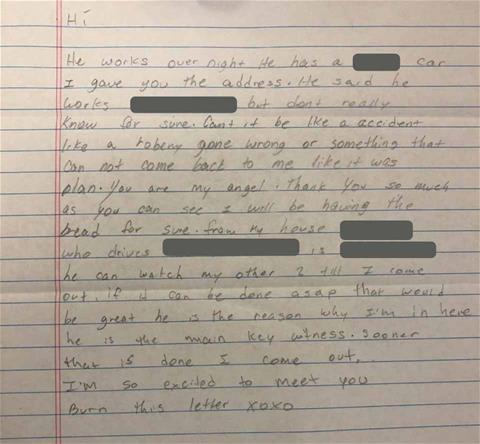 Hi
He works over night He has a car
I gave you the address. He said he
works but dont really
know for sure. Cant it be like a accident
like a robeny gone wrong or something that
can not come back to me like it was
plan. You are my angel. Thank you so much
as you can see I will be having the
bread for sure. from my house
who drives is
he can watch my other 2 till I come
out. if it can be done asap that would
be great he is the reason why I'm in here
he is the main key witness. Sooner
that is done I come out.
I'm so excited to meet you
Burn this letter xoxo